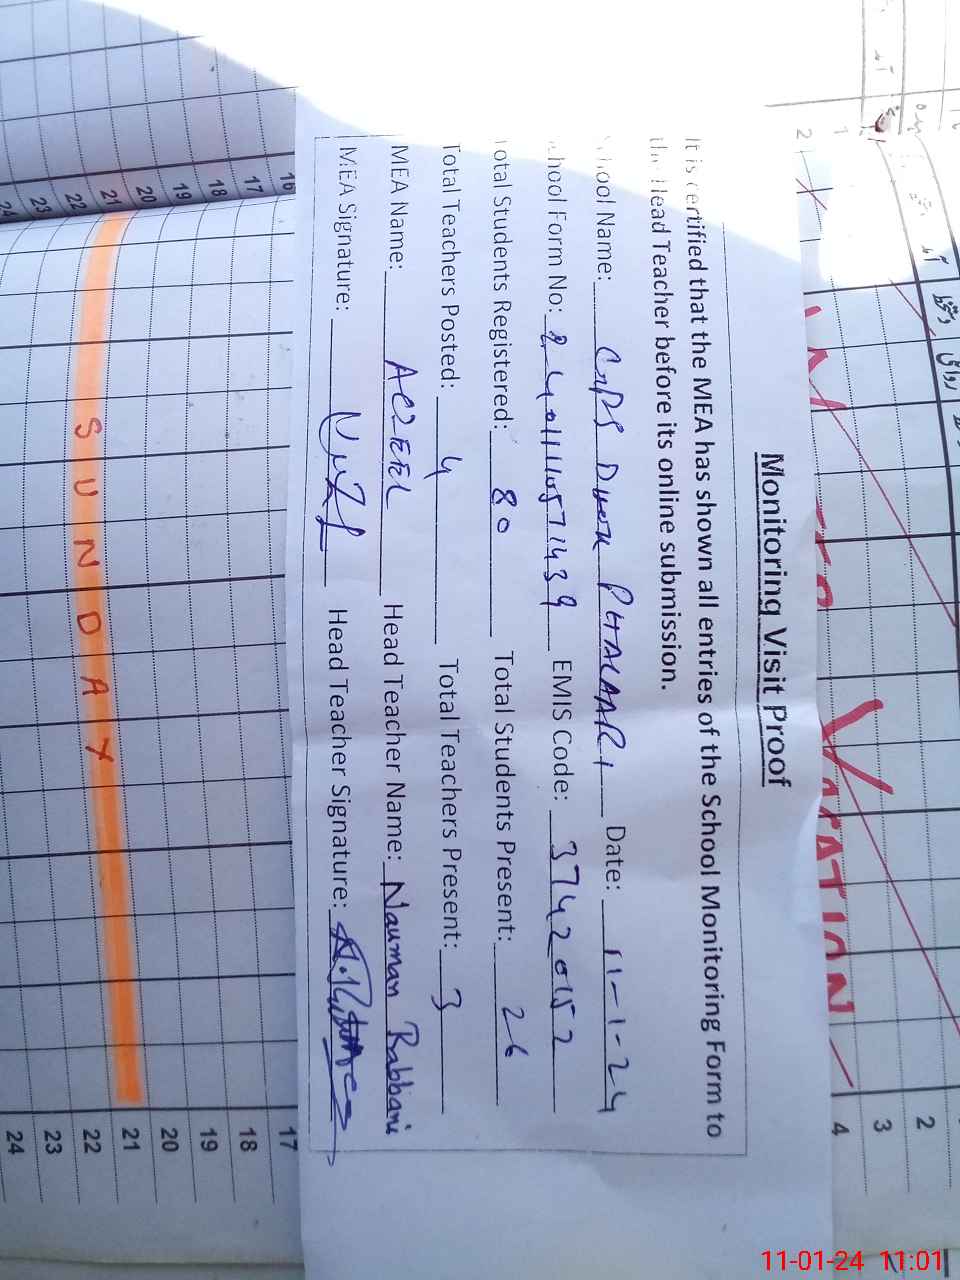 Monitoring Visit Proof
It is certified that the MEA has shown all entries of the School Monitoring Form to
the Head Teacher before its online submission.
School Name: GPS PHALAARI Date: 11-1-24
School Form No: EMIS Code: 37420152
Total Students Registered: 80 Total Students Present: 26
Total Teachers Posted: 4 Total Teachers Present: 3
MEA Name: Head Teacher Name: Nauman Rabbani
MEA Signature: Head Teacher Signature:
SUNDAY
VACATION
16
17
18
19
20
21
22
23
24
17
18
19
20
21
22
23
24
1
2
2
3
4
روانگی
11-01-24 11:01